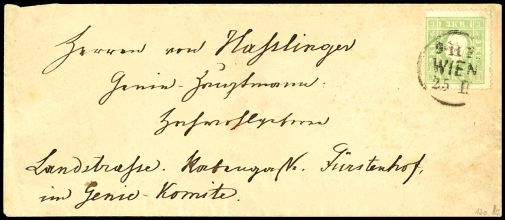 Herren von Hasslinger
Genie-Hauptmann
Hochwohlgeboren
Landstrasse. Rabengasse. Fürstenhof,
im Genie-Komite.
WIEN
25 II